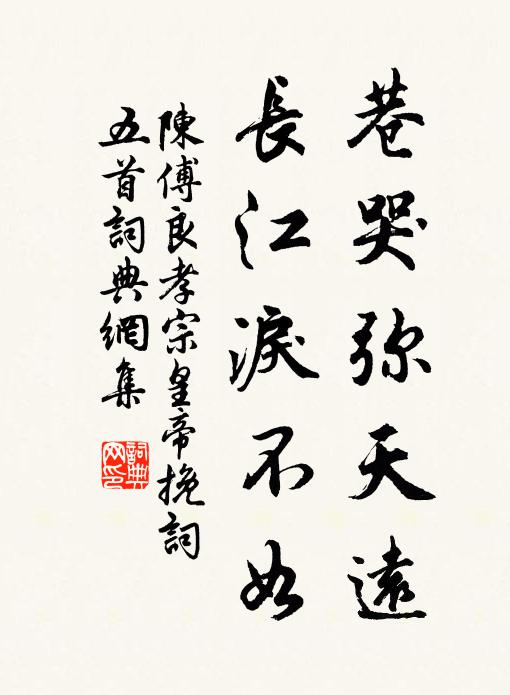 巷哭弥天遠
長江淚不如
陳傅良孝宗皇帝挽詞
五首詞典網集
詞典網印